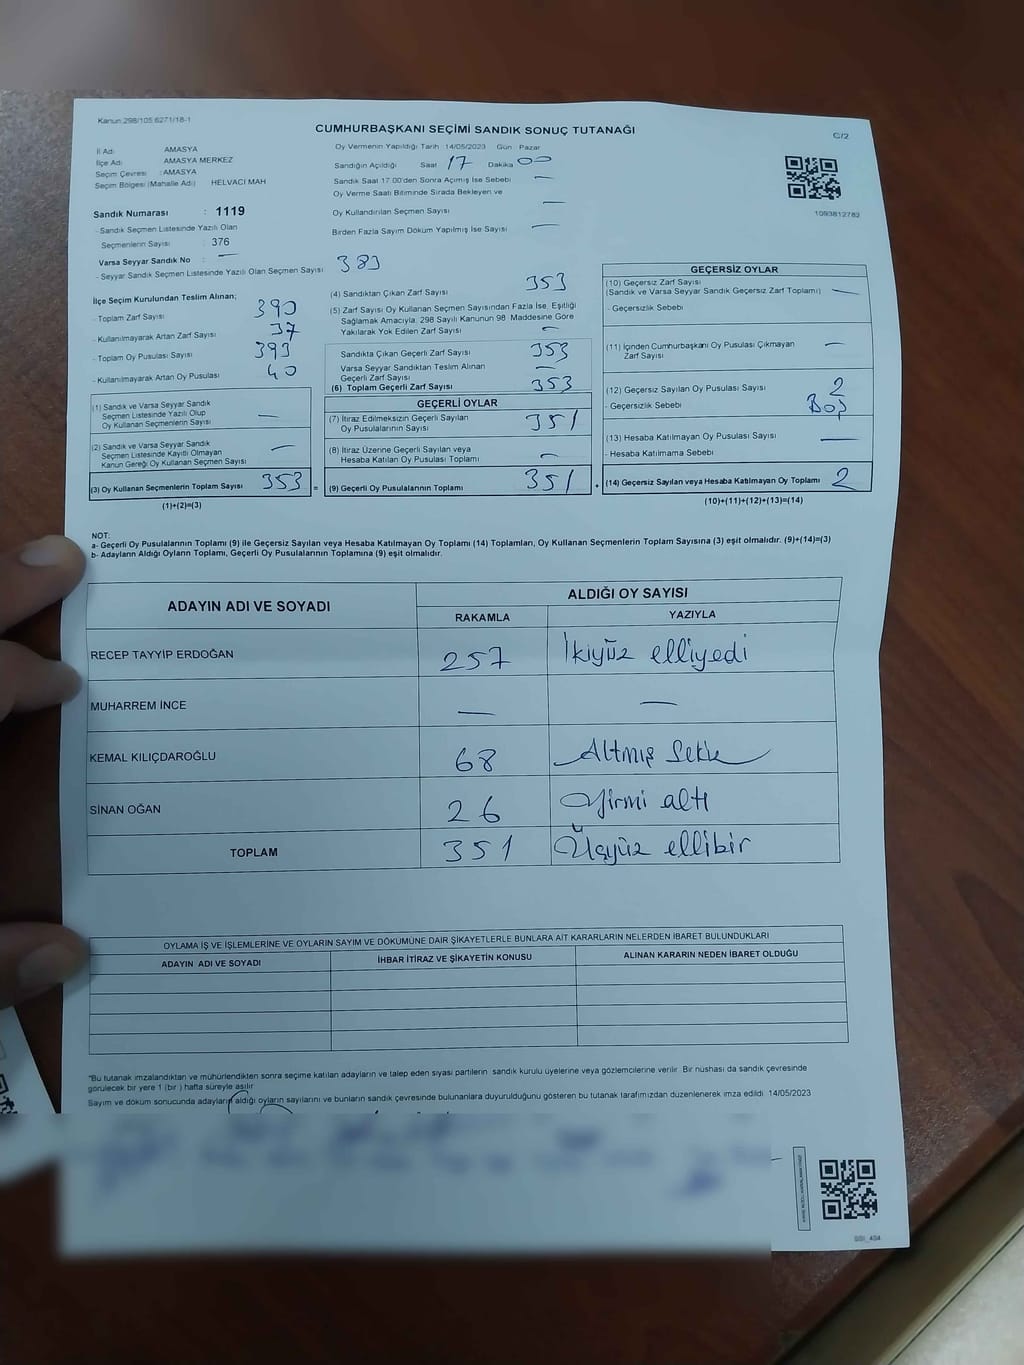 Kanun:298/105 6271/18-1
CUMHURBAŞKANI SEÇİMİ SANDIK SONUÇ TUTANAĞI
C/2
İl Adı : AMASYA
İlçe Adı : AMASYA MERKEZ
Seçim Çevresi : AMASYA
Seçim Bölgesi (Mahalle Adı) HELVACI MAH
Sandık Numarası : 1119
- Sandık Seçmen Listesinde Yazılı Olan
Seçmenlerin Sayısı : 376
Varsa Seyyar Sandık No : —
- Seyyar Sandık Seçmen Listesinde Yazılı Olan Seçmen Sayısı 383
Oy Vermenin Yapıldığı Tarih : 14/05/2023 Gün : Pazar
Sandığın Açıldığı Saat 17 Dakika 00
Sandık Saat 17:00'den Sonra Açılmış İse Sebebi —
Oy Verme Saati Bitiminde Sırada Bekleyen ve
Oy Kullandırılan Seçmen Sayısı —
Birden Fazla Sayım Döküm Yapılmış İse Sayısı —
1093812783
İlçe Seçim Kurulundan Teslim Alınan;
- Toplam Zarf Sayısı 390
- Kullanılmayarak Artan Zarf Sayısı 37
- Toplam Oy Pusulası Sayısı 393
- Kullanılmayarak Artan Oy Pusulası 40
(1) Sandık ve Varsa Seyyar Sandık
Seçmen Listesinde Yazılı Olup
Oy Kullanan Seçmenlerin Sayısı —
(2) Sandık ve Varsa Seyyar Sandık
Seçmen Listesinde Kayıtlı Olmayan
Kanun Gereği Oy Kullanan Seçmen Sayısı —
(3) Oy Kullanan Seçmenlerin Toplam Sayısı 353 =
(1)+(2)=(3)
(4) Sandıktan Çıkan Zarf Sayısı 353
(5) Zarf Sayısı Oy Kullanan Seçmen Sayısından Fazla İse, Eşitliği
Sağlamak Amacıyla; 298 Sayılı Kanunun 98. Maddesine Göre
Yakılarak Yok Edilen Zarf Sayısı —
Sandıkta Çıkan Geçerli Zarf Sayısı 353
Varsa Seyyar Sandıktan Teslim Alınan
Geçerli Zarf Sayısı —
(6) Toplam Geçerli Zarf Sayısı 353
GEÇERLİ OYLAR
(7) İtiraz Edilmeksizin Geçerli Sayılan
Oy Pusulalarının Sayısı 351
(8) İtiraz Üzerine Geçerli Sayılan veya
Hesaba Katılan Oy Pusulası Toplamı —
(9) Geçerli Oy Pusulalarının Toplamı 351 +
GEÇERSİZ OYLAR
(10) Geçersiz Zarf Sayısı
(Sandık ve Varsa Seyyar Sandık Geçersiz Zarf Toplamı) —
- Geçersizlik Sebebi
(11) İçinden Cumhurbaşkanı Oy Pusulası Çıkmayan
Zarf Sayısı —
(12) Geçersiz Sayılan Oy Pusulası Sayısı 2
- Geçersizlik Sebebi Boş
(13) Hesaba Katılmayan Oy Pusulası Sayısı —
- Hesaba Katılmama Sebebi
(14) Geçersiz Sayılan veya Hesaba Katılmayan Oy Toplamı 2
(10)+(11)+(12)+(13)=(14)
NOT:
a- Geçerli Oy Pusulalarının Toplamı (9) ile Geçersiz Sayılan veya Hesaba Katılmayan Oy Toplamı (14) Toplamları, Oy Kullanan Seçmenlerin Toplam Sayısına (3) eşit olmalıdır. (9)+(14)=(3)
b- Adayların Aldığı Oyların Toplamı, Geçerli Oy Pusulalarının Toplamına (9) eşit olmalıdır.
ADAYIN ADI VE SOYADI ALDIĞI OY SAYISI
RAKAMLA YAZIYLA
RECEP TAYYİP ERDOĞAN 257 İkiyüz elliyedi
MUHARREM İNCE — —
KEMAL KILIÇDAROĞLU 68 Altmış Sekiz
SİNAN OĞAN 26 Yirmi altı
TOPLAM 351 Üçyüz ellibir
OYLAMA İŞ VE İŞLEMLERİNE VE OYLARIN SAYIM VE DÖKÜMÜNE DAİR ŞİKAYETLERLE BUNLARA AİT KARARLARIN NELERDEN İBARET BULUNDUKLARI
ADAYIN ADI VE SOYADI İHBAR İTİRAZ VE ŞİKAYETİN KONUSU ALINAN KARARIN NEDEN İBARET OLDUĞU
*Bu tutanak imzalandıktan ve mühürlendikten sonra seçime katılan adayların ve talep eden siyasi partilerin sandık kurulu üyelerine veya gözlemcilerine verilir. Bir nüshası da sandık çevresinde
görülecek bir yere 1 (bir ) hafta süreyle asılır.
Sayım ve döküm sonucunda adayların aldığı oyların sayılarını ve bunların sandık çevresinde bulunanlara duyurulduğunu gösteren bu tutanak tarafımızdan düzenlenerek imza edildi. 14/05/2023